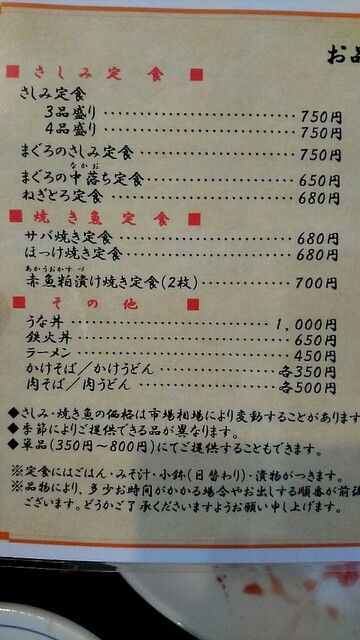 お品
■ さしみ定食 ■
さしみ定食
3品盛り……………………750円
4品盛り……………………750円
まぐろのさしみ定食……………750円
なかお
まぐろの中落ち定食……………650円
ねぎとろ定食……………………680円
■ 焼き魚定食 ■
サバ焼き定食……………………680円
ほっけ焼き定食…………………680円
あかうおかすづ
赤魚粕漬け焼き定食(2枚)………700円
■ その他 ■
うな丼…………………………1,000円
鉄火丼……………………………650円
ラーメン…………………………450円
かけそば/かけうどん…………各350円
肉そば/肉うどん………………各500円
◆さしみ・焼き魚の価格は市場相場により変動することがあります
◆季節によりご提供できる品が異なります。
◆単品(350円〜800円)にてご提供することもできます。
※定食にはごはん・みそ汁・小鉢(日替わり)・漬物がつきます。
※品物により、多少お時間がかかる場合やお出しする順番が前後
ございます。どうかご了承くださいますようお願い申し上げます。